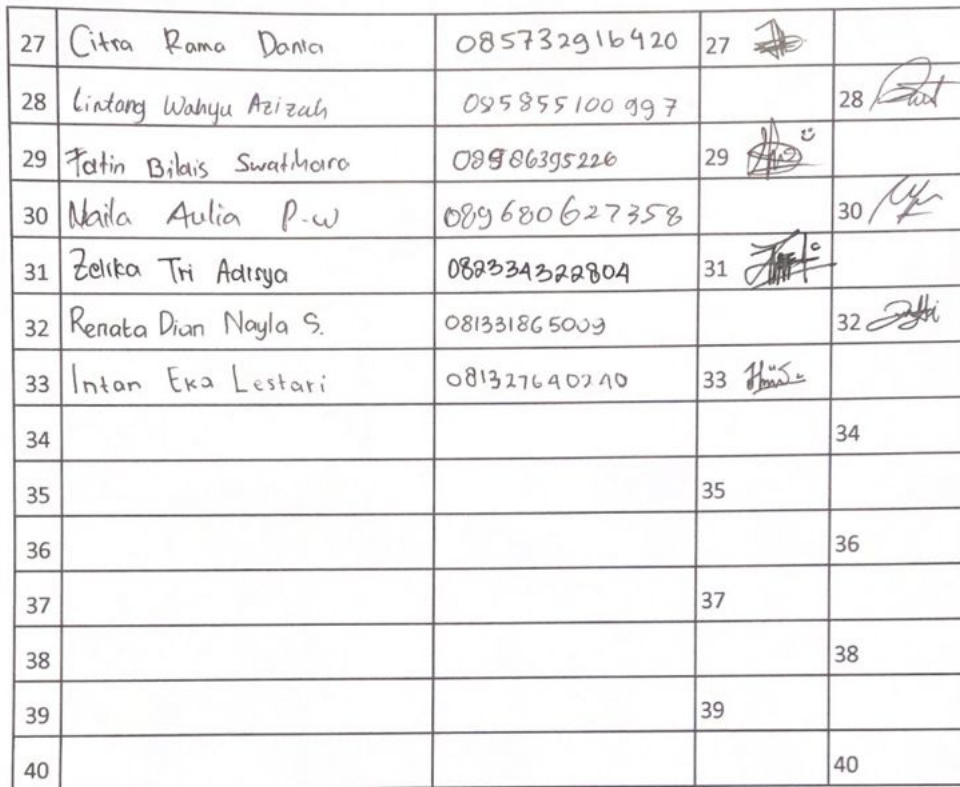 27 Citra Rama Dania 085732916420 27
28 Lintang Wahyu Azizah 085855100997 28
29 Fatin Bilqis Swatihara 08986395226 29
30 Naila Aulia P.W 089680627358 30
31 Zelika Tri Adisya 082334322804 31
32 Renata Dian Nayla S. 081331865009 32
33 Intan Eka Lestari 081327640240 33
34 34
35 35
36 36
37 37
38 38
39 39
40 40